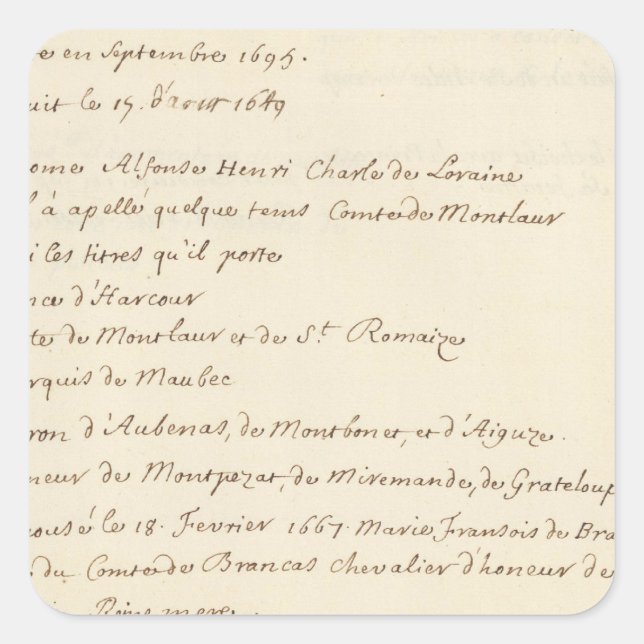 e en Septembre 1695.
uit le 15. d'aout 1649
ome Alfonse Henri Charle de Loraine
l'à apellé quelque tems Comte de Montlaur
i les titres qu'il porte
nce d'Harcour
te de Montlaur et de S.t Romaize
rquis de Maubec
ron d'Aubenas, de Montbonet, et d'Aiguze.
neur de Montpezat, de Miremande, de Grateloup
ousé le 18. Fevrier 1667. Marie Fransois de Bra
du Comte de Brancas Chevalier d'honeur de
Reine mere.